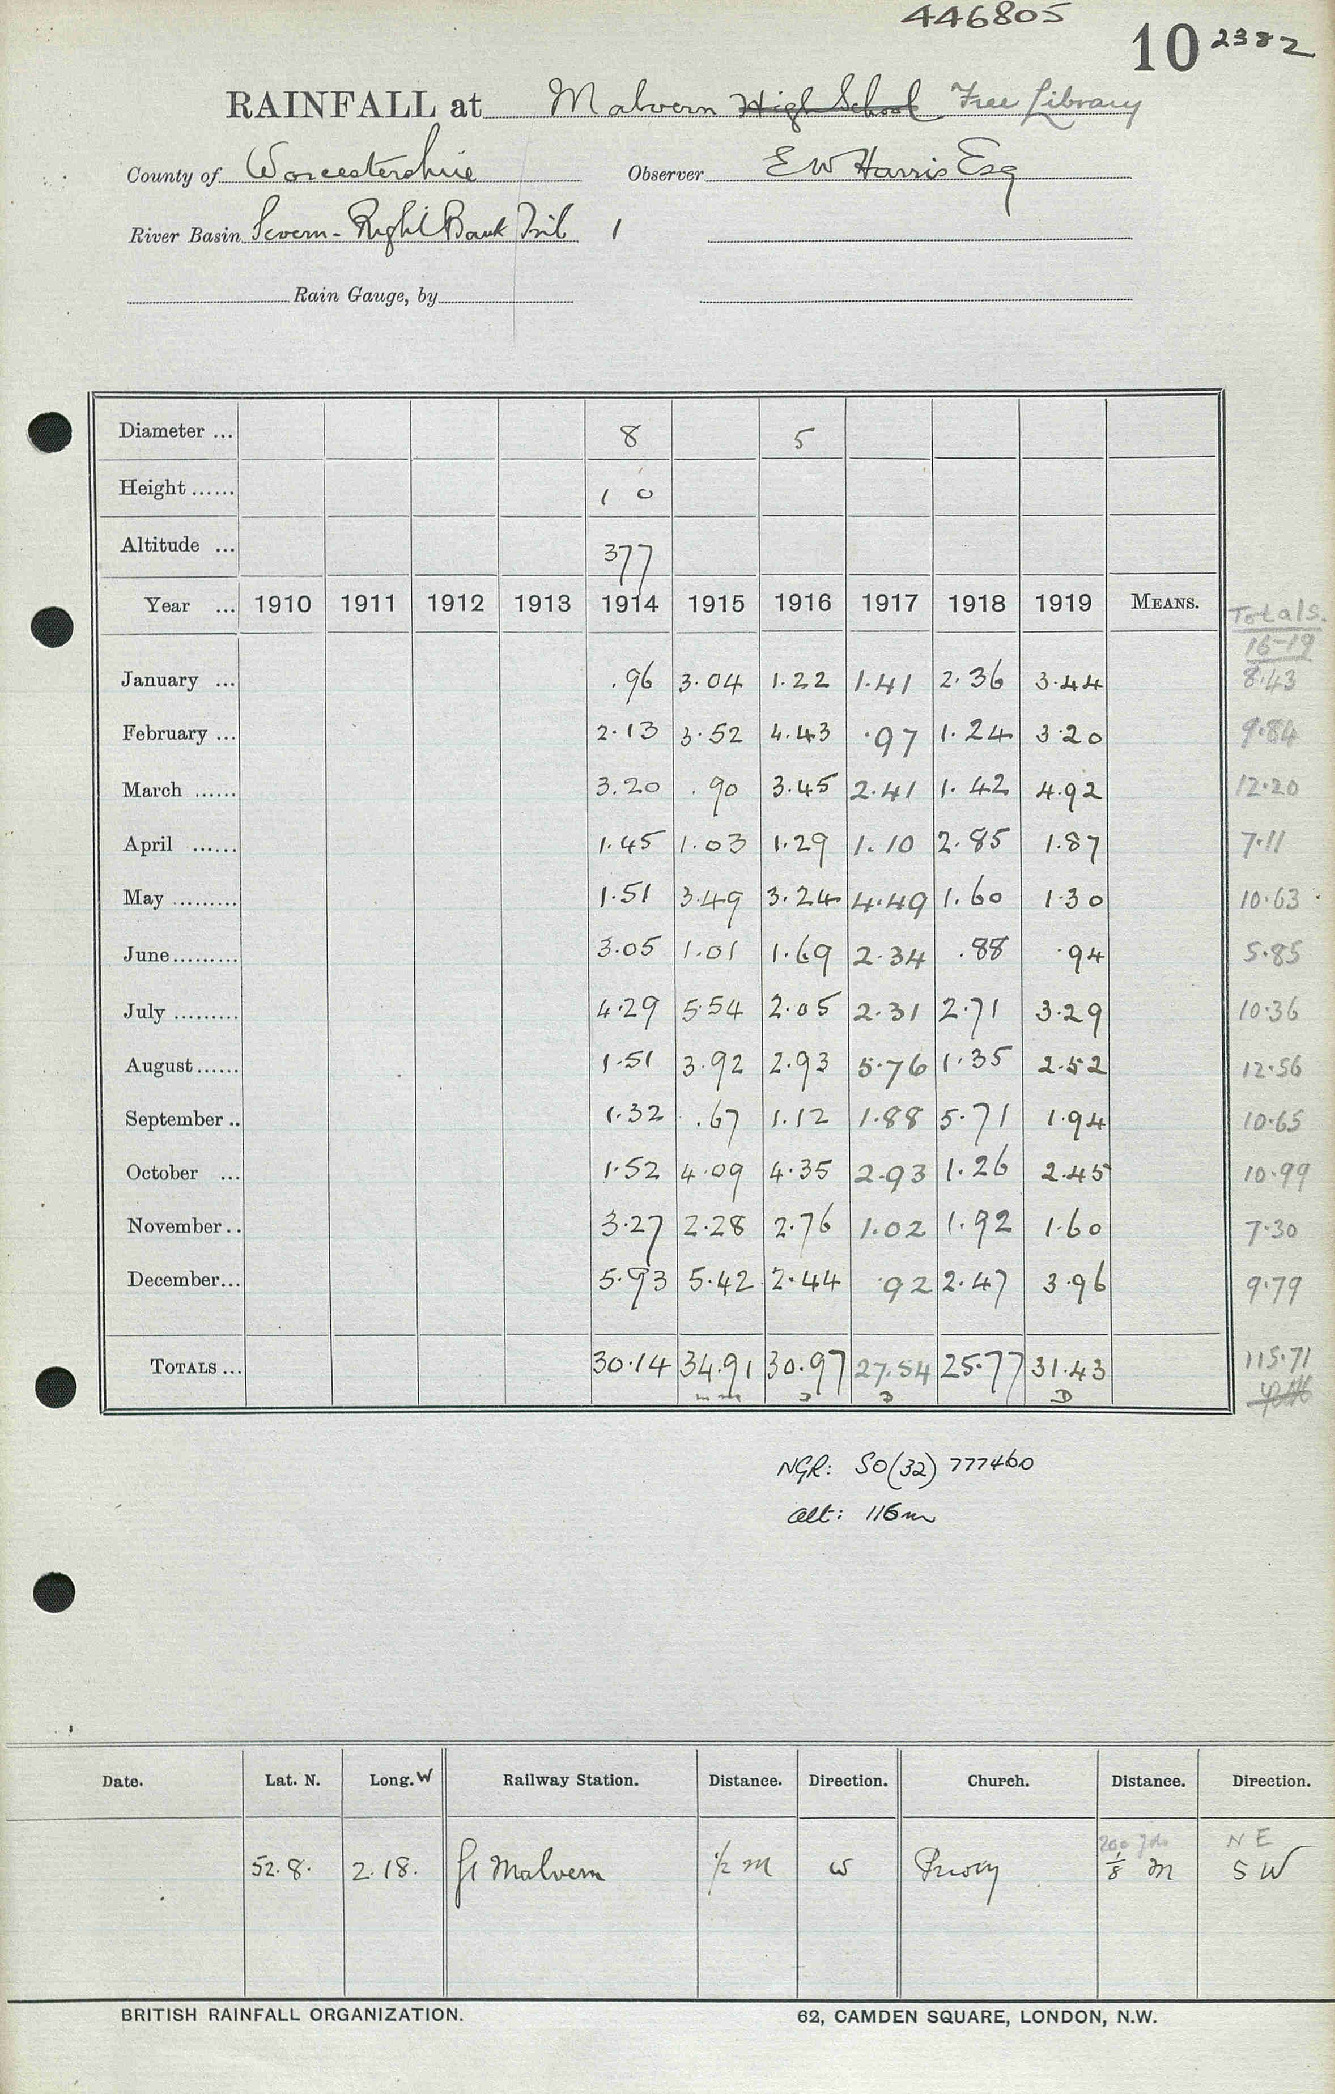 446805
10 2382
RAINFALL at Malvern High School Free Library
County of Worcestershire Observer E W Harris Esq
River Basin Severn - Right Bank Trib 1
Rain Gauge, by
Diameter ... 8 5
Height ...... 1 0
Altitude ... 377
Year ... 1910 1911 1912 1913 1914 1915 1916 1917 1918 1919 MEANS. Totals. 16-19
January ... .96 3.04 1.22 1.41 2.36 3.44 8.43
February ... 2.13 3.52 4.43 .97 1.24 3.20 9.84
March ...... 3.20 .90 3.45 2.41 1.42 4.92 12.20
April ...... 1.45 1.03 1.29 1.10 2.85 1.87 7.11
May ......... 1.51 3.49 3.24 4.49 1.60 1.30 10.63
June ......... 3.05 1.01 1.69 2.34 .88 .94 5.85
July ......... 4.29 5.54 2.05 2.31 2.71 3.29 10.36
August ...... 1.51 3.92 2.93 5.76 1.35 2.52 12.56
September .. 1.32 .67 1.12 1.88 5.71 1.94 10.65
October ... 1.52 4.09 4.35 2.93 1.26 2.45 10.99
November .. 3.27 2.28 2.76 1.02 1.92 1.60 7.30
December ... 5.93 5.42 2.44 .92 2.47 3.96 9.79
TOTALS ... 30.14 34.91 30.97 27.54 25.77 31.43 115.71
NGR: SO(32) 777460
alt: 116m
Date. Lat. N. Long. W Railway Station. Distance. Direction. Church. Distance. Direction.
200 yds N E
52.8. 2.18. Gt Malvern 1/2 m W Priory 1/8 m S W
BRITISH RAINFALL ORGANIZATION. 62, CAMDEN SQUARE, LONDON, N.W.